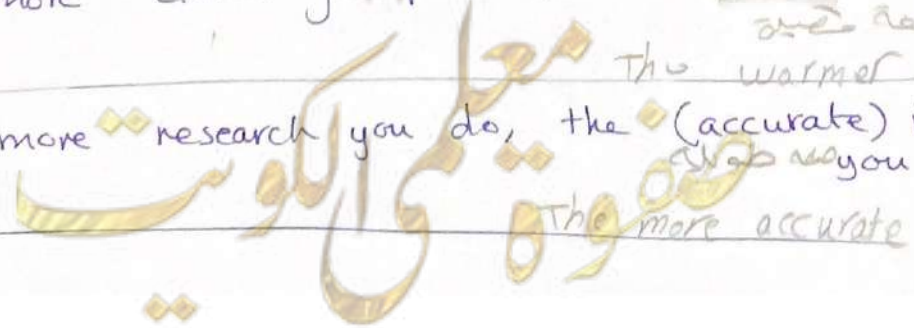 The warmer
more research you do, the (accurate)
صفة طويلة you
The more accurate
صفوة معلمى الكويت